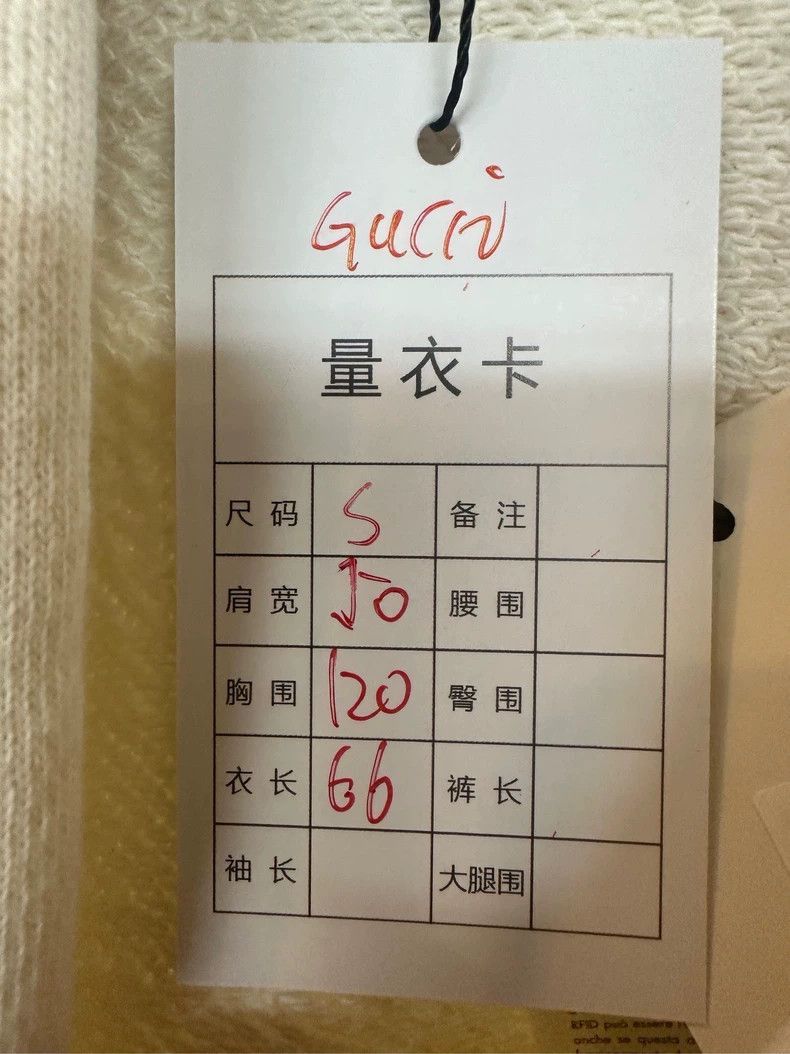 Gucci
量衣卡
尺码 S 备注
肩宽 50 腰围
胸围 120 臀围
衣长 66 裤长
袖长 大腿围
RFID può essere
anche se questa